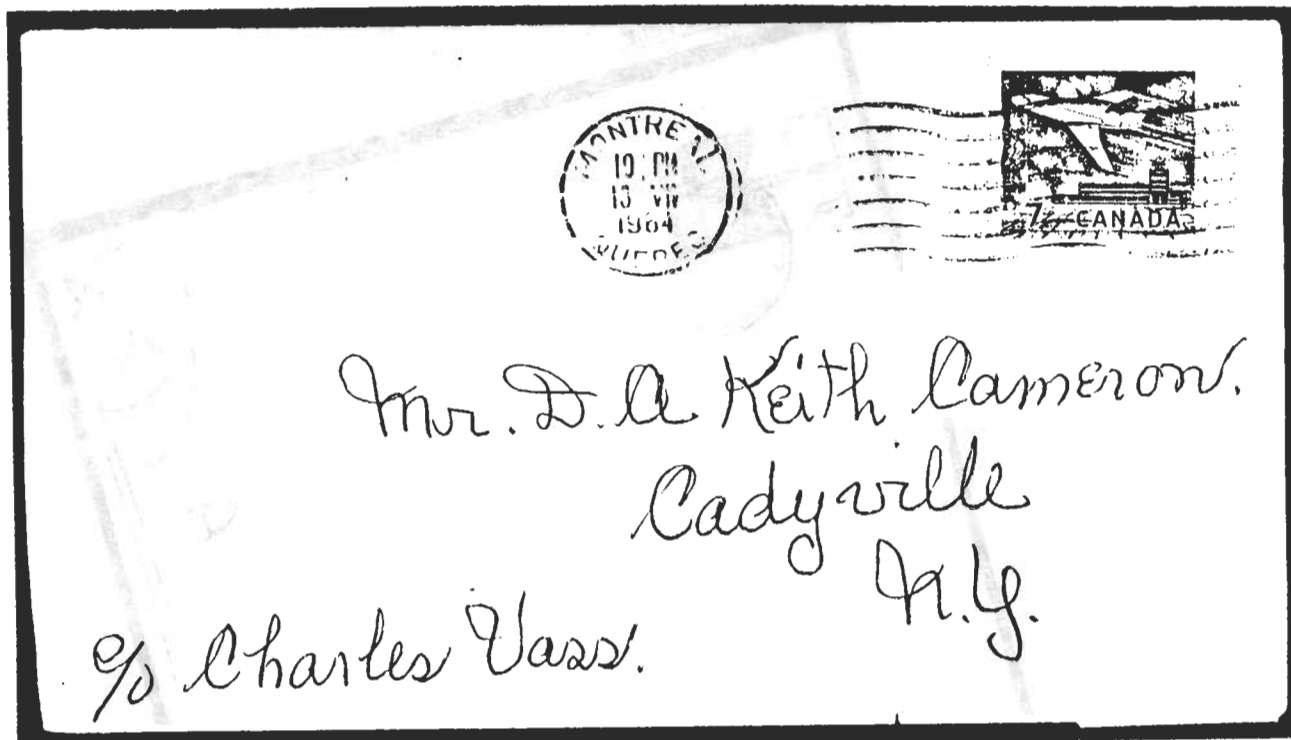 MONTREAL
19 PM
13 VII
1964
QUEBEC
7¢ CANADA
Mr. D. A Keith Cameron.
Cadyville
N.Y.
c/o Charles Vass.